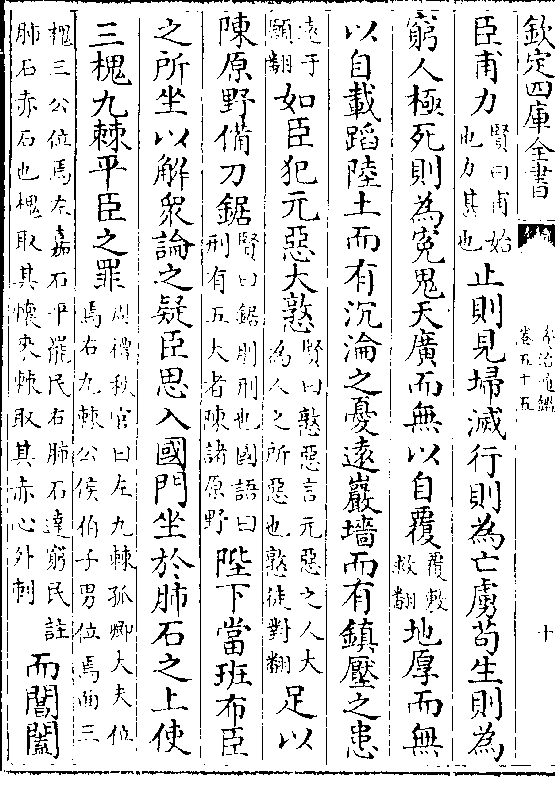 欽定四庫全書
資治通鑑
卷五十五
十
臣甫力賢曰甫始也力其也止則見埽滅行則為亡虜苟生則為
窮人極死則為寃鬼天廣而無以自覆覆敷救翻地厚而無
以自載蹈陸土而有沉淪之憂遠巖墻而有鎮壓之患
遠于願翻如臣犯元惡大憝賢曰憝惡言元惡之人大為人之所惡也憝徒對翻足以
陳原野備刀鋸賢曰鋸刖刑也國語曰刑有五大者陳諸原野陛下當班布臣
之所坐以解衆論之疑臣思入國門坐於肺石之上使
三槐九棘平臣之罪周禮秋官曰左九棘孤卿大夫位焉右九棘公侯伯子男位焉面三
槐三公位焉左嘉石平罷民右肺石達窮民註肺石赤石也槐取其懷來棘取其赤心外刺而閶闔